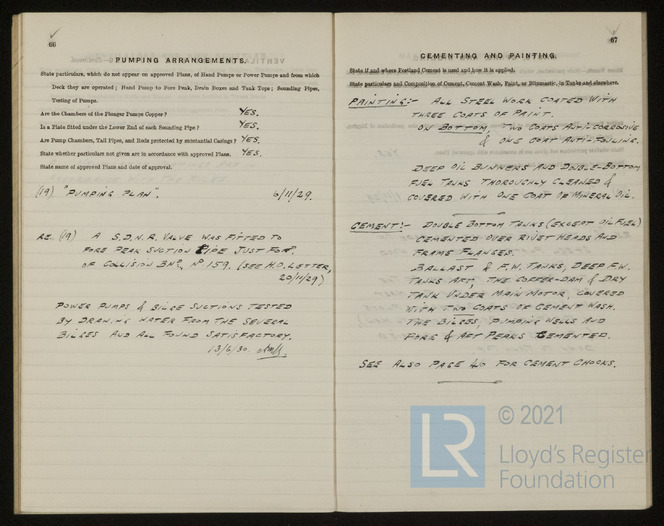 66
PUMPING ARRANGEMENTS.
State particulars, which do not appear on approved Plans, of Hand Pumps or Power Pumps and from which
Deck they are operated; Hand Pump to Fore Peak, Drain Boxes and Tank Tops; Sounding Pipes,
Testing of Pumps.
Are the Chambers of the Plunger Pumps Copper? YES.
Is a Plate fitted under the Lower End of each Sounding Pipe? YES.
Are Pump Chambers, Tail Pipes, and Rods protected by substantial Casings? YES.
State whether particulars not given are in accordance with approved Plans. YES.
State name of approved Plans and date of approval.
(19) "PUMPING PLAN". 6/11/29.
RE. (19) A S.D.N.R. VALVE WAS FITTED TO
FORE PEAK SUCTION PIPE JUST FOR'D
OF COLLISION BHD, Nº 159. (SEE H.O. LETTER,
20/11/29)
POWER PUMPS & BILGE SUCTIONS TESTED
BY DRAWING WATER FROM THE SEVERAL
BILGES AND ALL FOUND SATISFACTORY.
13/6/30
67
CEMENTING AND PAINTING.
State if and where Portland Cement is used and how it is applied.
State particulars and Composition of Cement, Cement Wash, Paint, or Bitumastic, in Tanks and elsewhere.
PAINTING:- ALL STEEL WORK COATED WITH
THREE COATS OF PAINT.
ON BOTTOM, TWO COATS ANTI-CORROSIVE
& ONE COAT ANTI-FOULING.
DEEP OIL BUNKERS AND DOUBLE-BOTTOM
FUEL TANKS THOROUGHLY CLEANED &
COVERED WITH ONE COAT OF MINERAL OIL.
CEMENT:- DOUBLE BOTTOM TANKS (EXCEPT OIL FUEL)
CEMENTED OVER RIVET HEADS AND
FRAME FLANGES.
BALLAST & F.W. TANKS, DEEP F.W.
TANKS AFT, THE COFFER-DAM & DRY
TANK UNDER MAIN MOTOR, COVERED
WITH TWO COATS OF CEMENT WASH.
THE BILGES, PUMPING WELLS AND
FORE & AFT PEAKS CEMENTED.
SEE ALSO PAGE 40 FOR CEMENT CHOCKS.
LR
© 2021
Lloyd's Register
Foundation